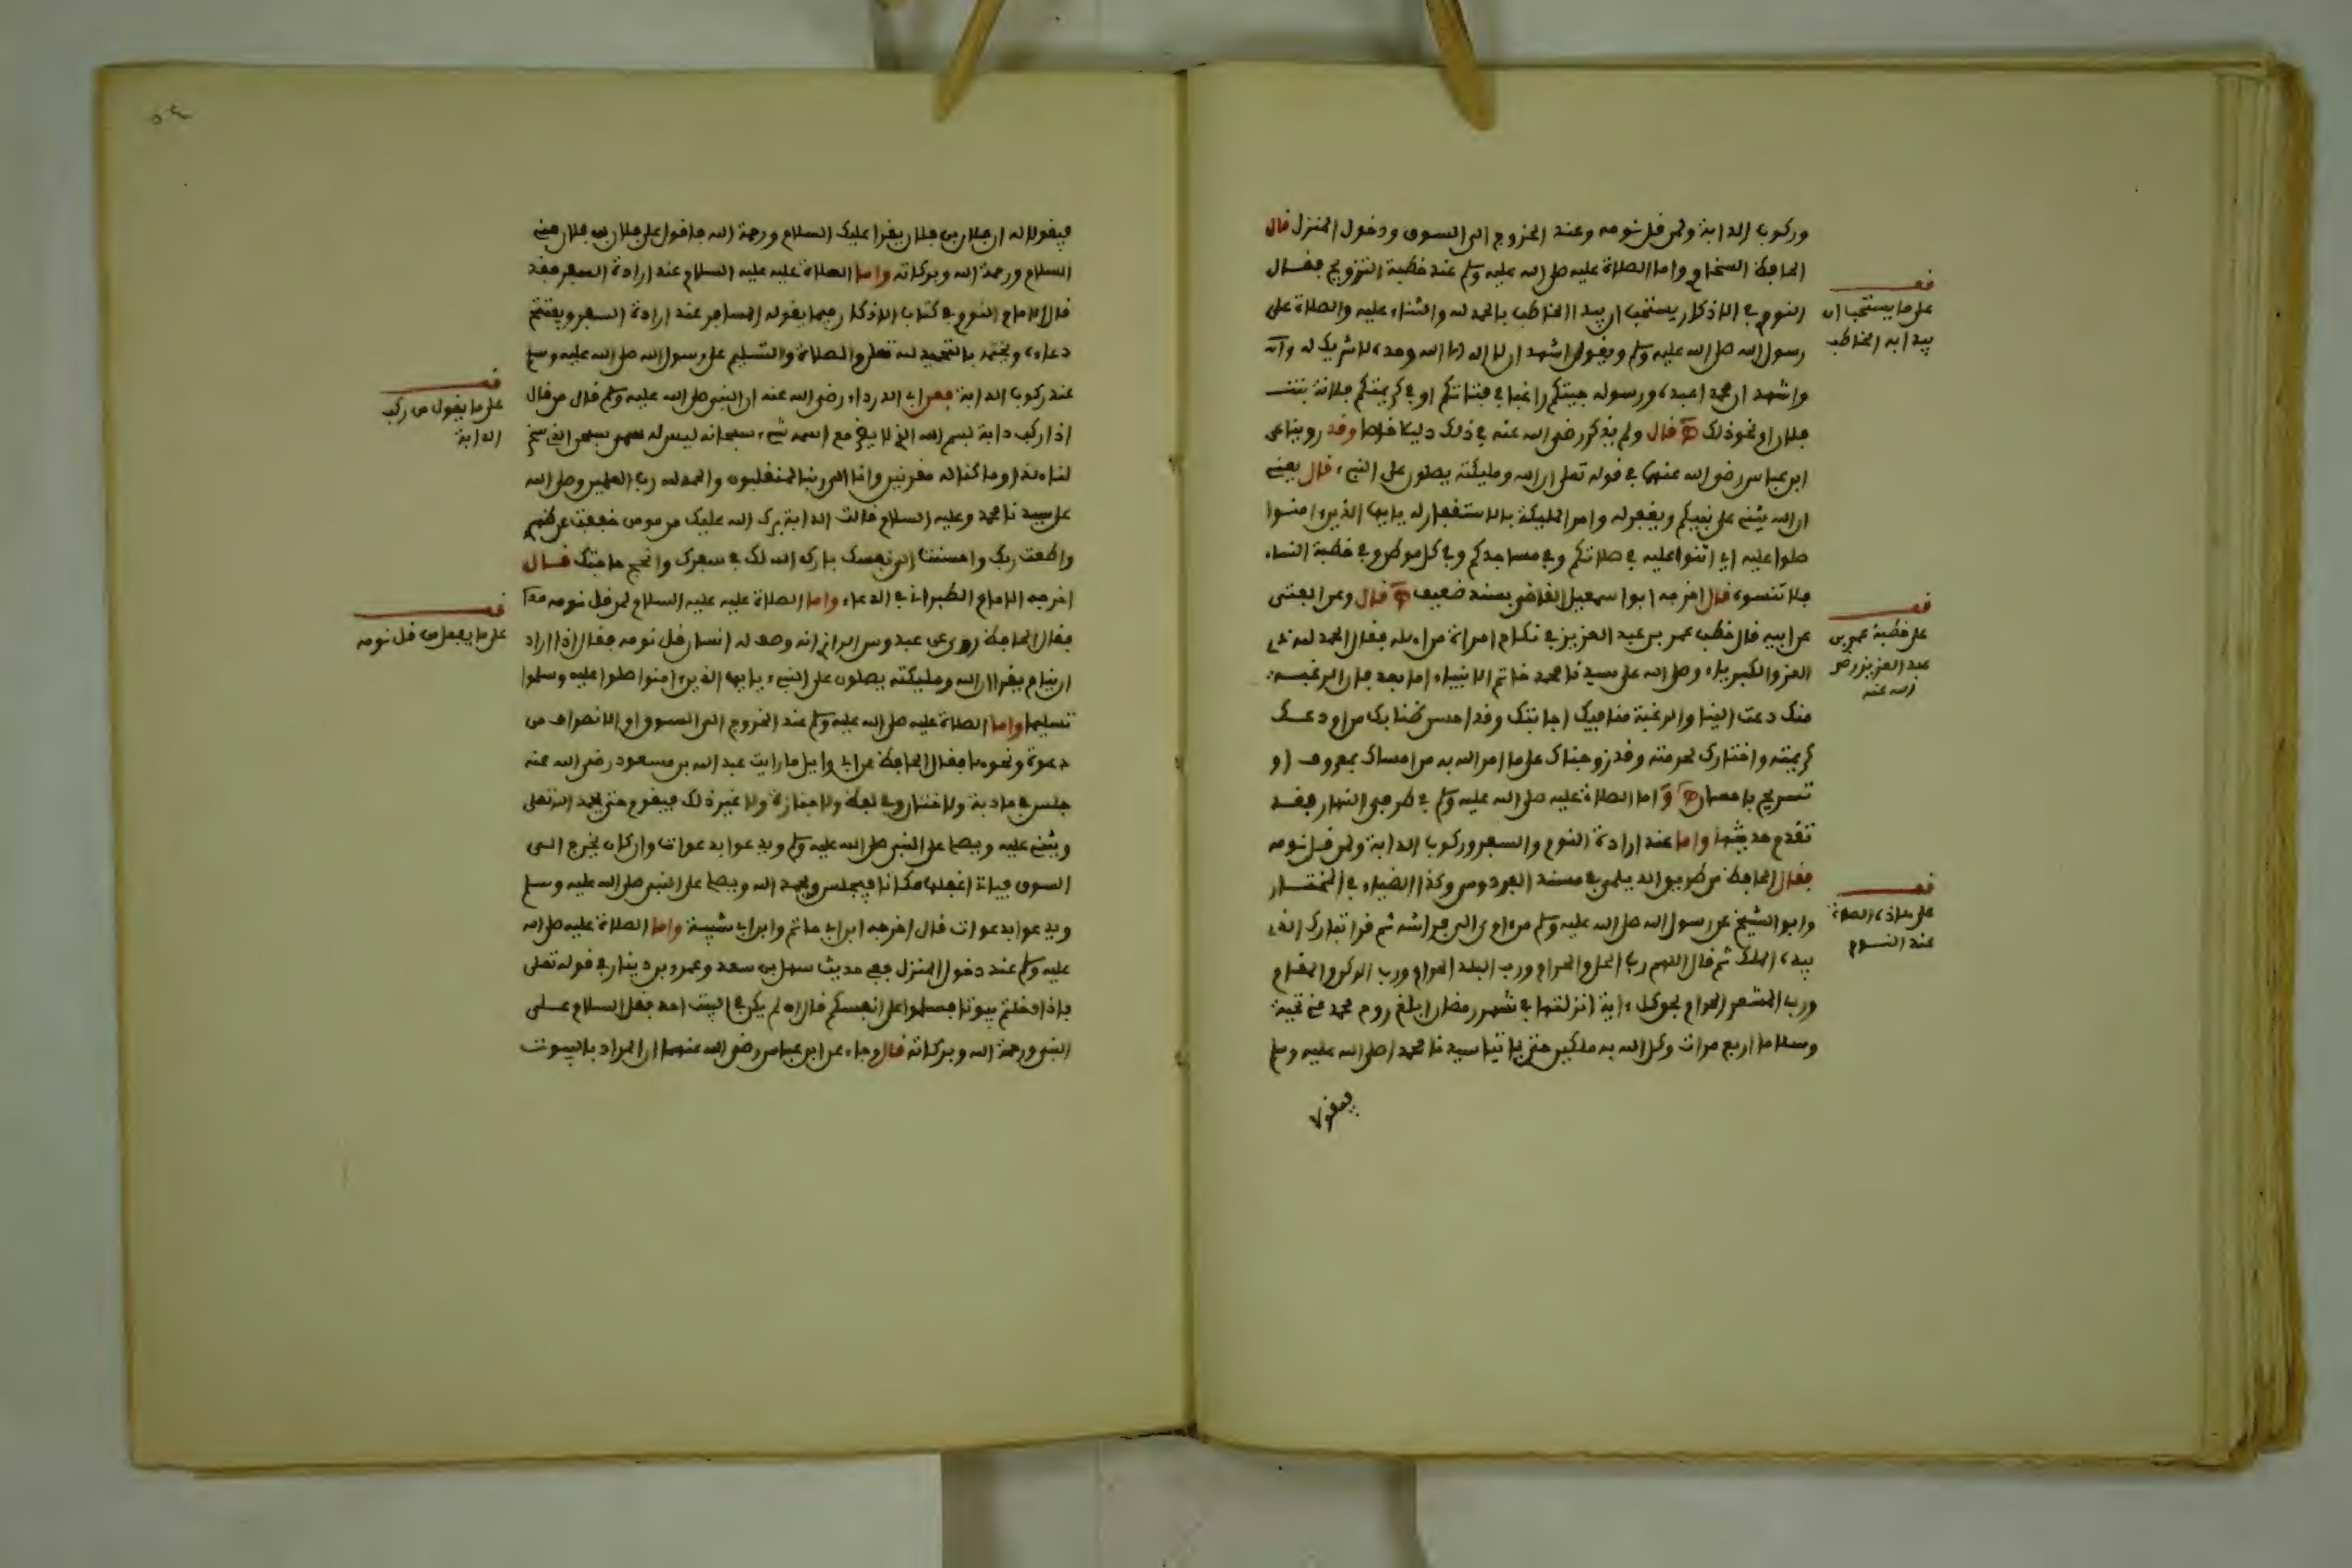 وركوب الدابة ولمن قل نومه وعند الخروج الى السوق ودخول المنزل قال
الحافظ السخاوي واما الصلاة عليه صلى الله عليه وسلم عند خطبة التزويج فقال
النووي في الاذكار يستحب ان يبدا الخاطب بالحمد لله والثناء عليه والصلاة على
رسول الله صلى الله عليه وسلم ويقول اشهد ان لا اله الا الله وحده لا شريك له وانه
واشهد ان محمدا عبده ورسوله جيتكم راغبا في فتاتكم او في كريمتكم فلانة بنت
فلان او نحو ذلك قال ولم يذكر رضي الله عنه في ذلك دليلا خاصا وقد روينا عن
ابن عباس رضي الله عنهما في قوله تعلى ان الله ومليكته يصلون على النبيء قال يعني
ان الله يثني على نبيكم ويغفر له وامر المليكة بالاستغفار له يايها الذين ءامنوا
صلوا عليه اي اثنوا عليه في صلاتكم وفي مساجدكم وفي كل موطن وفي خطبة النساء
فلا تنسوه قال اخرجه ابوا سمعيل القاضي بسند ضعيف قال وعن العتبي
عن ابيه قال خطب عمر بن عبد العزيز في نكاح امراة من اهله فقال الحمد لله ذي
العز والكبرياء وصلى الله على سيدنا محمد خاتم الانبياء اما بعد فان الرغبة
منك دعت الينا والرغبة منا فيك اجابتك وقد احسن ظنا بك من اودعك
كريمته واختارك لحرمته وقد زوجناك على ما امر الله به من امساك بمعروف او
تسريح باحسان واما الصلاة عليه صلى الله عليه وسلم في طرفي النهار فقد
تقدم حديثها واما عند ارادة النوم والسفر وركوب الدابة ولمن قل نومه
فقال الحافظ من طريق الديلمي في مسند الفردوس وكذا الضياء في المختار
وابو الشيخ عن رسول الله صلى الله عليه وسلم من اوى الى فراشه ثم قرا تبارك الذي
بيده الملك ثم قال اللهم رب الحل والحرام ورب البلد الحرام ورب الركن والمقام
ورب المشعر الحرام بحق كل ءاية انزلتها في شهر رمضان ابلغ روح محمد مني تحية
وسلاما اربع مرات وكل الله به ملكين حتى ياتيا سيدنا محمدا صلى الله عليه وسلم
فيقولا
قف
على ما يستحب ان
يبدا به الخاطب
قف
على خطبة عمر بن
عبد العزيز رضي
الله عنه
قف
على هاذه الصلاة
عند النوم
٥٤
فيقولا له ان فلان بن فلان يقرا عليك السلام ورحمة الله فاقول على فلان بن فلان مني
السلام ورحمة الله وبركاته واما الصلاة عليه عليه السلام عند ارادة السفر فقد
قال الامام النووي في كتاب الاذكار فيما يقوله المسافر عند ارادة السفر ويفتتح
دعاءه ويختمه بالتحميد لله تعلى والصلاة والتسليم على رسول الله صلى الله عليه وسلم
عند ركوب الدابة فعن ابي الدرداء رضي الله عنه ان النبي صلى الله عليه وسلم قال من قال
اذا ركب دابة بسم الله الذي لا يضر مع اسمه شيء سبحانه ليس له سمي سبحن الذي سخر
لنا هذا وما كنا له مقرنين وانا الى ربنا لمنقلبون والحمد لله رب العلمين وصلى الله
على سيدنا محمد وعليه السلام قالت الدابة برك الله عليك من مومن خففت عن ظهري
واطعت ربك واحسنت الى نفسك بارك الله لك في سفرك وانجح حاجتك قال
اخرجه الامام الطبراني في الدعاء واما الصلاة عليه عليه السلام لمن قل نومه
فقال الحافظ روي عن عبدوس الرازي انه وصف له انسان قل نومه فقال اذا اراد
ان ينام يقرا ان الله ومليكته يصلون على النبيء يايها الذين ءامنوا صلوا عليه وسلموا
تسليما واما الصلاة عليه صلى الله عليه وسلم عند الخروج الى السوق او الانصراف من
دعوة ونحوها فقال الحافظ عن ابي وايل ما رايت عبد الله بن مسعود رضي الله عنه
جلس في مادبة ولا ختان وفي لفظ ولا جنازة ولا غير ذلك فيقوم حتى يحمد الله تعلى
ويثني عليه ويصلي على النبي صلى الله عليه وسلم ويدعوا بدعوات وان كان يخرج الى
السوق فياتي اغفلها مكانا فيجلس ويحمد الله ويصلي على النبي صلى الله عليه وسلم
ويدعوا بدعوات قال اخرجه ابن ابي حاتم وابن ابي شيبة واما الصلاة عليه صلى الله
عليه وسلم عند دخول المنزل ففي حديث سهل بن سعد وعمرو بن دينار في قوله تعلى
فاذا دخلتم بيوتا فسلموا على انفسكم قال ان لم يكن في البيت احد فقل السلام على
النبي ورحمة الله وبركاته قال وجاء عن ابن عباس رضي الله عنهما ان المراد بالبيوت
قف
على ما يقول من ركب
الدابة
قف
على ما يفعل من قل نومه